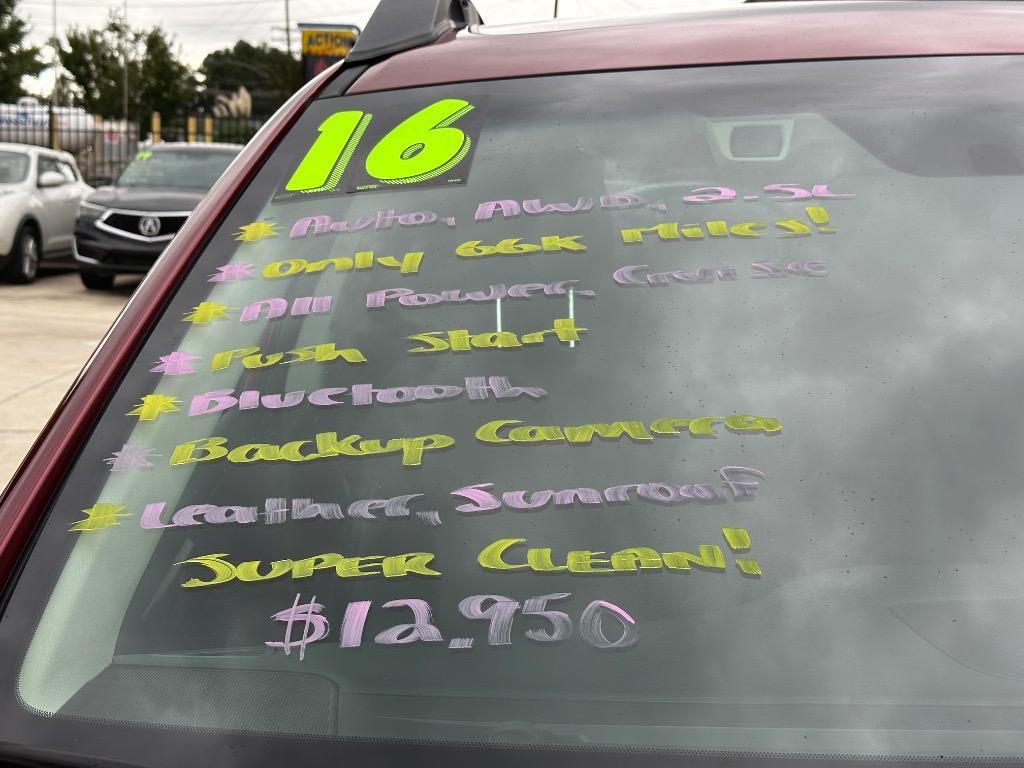 ACTION
16
* Auto, AWD, 2.5L
* Only 66K Miles!
* All Power, Cruise
* Push Start
* Bluetooth
* Backup Camera
* Leather, Sunroof
SUPER CLEAN!
$12,950